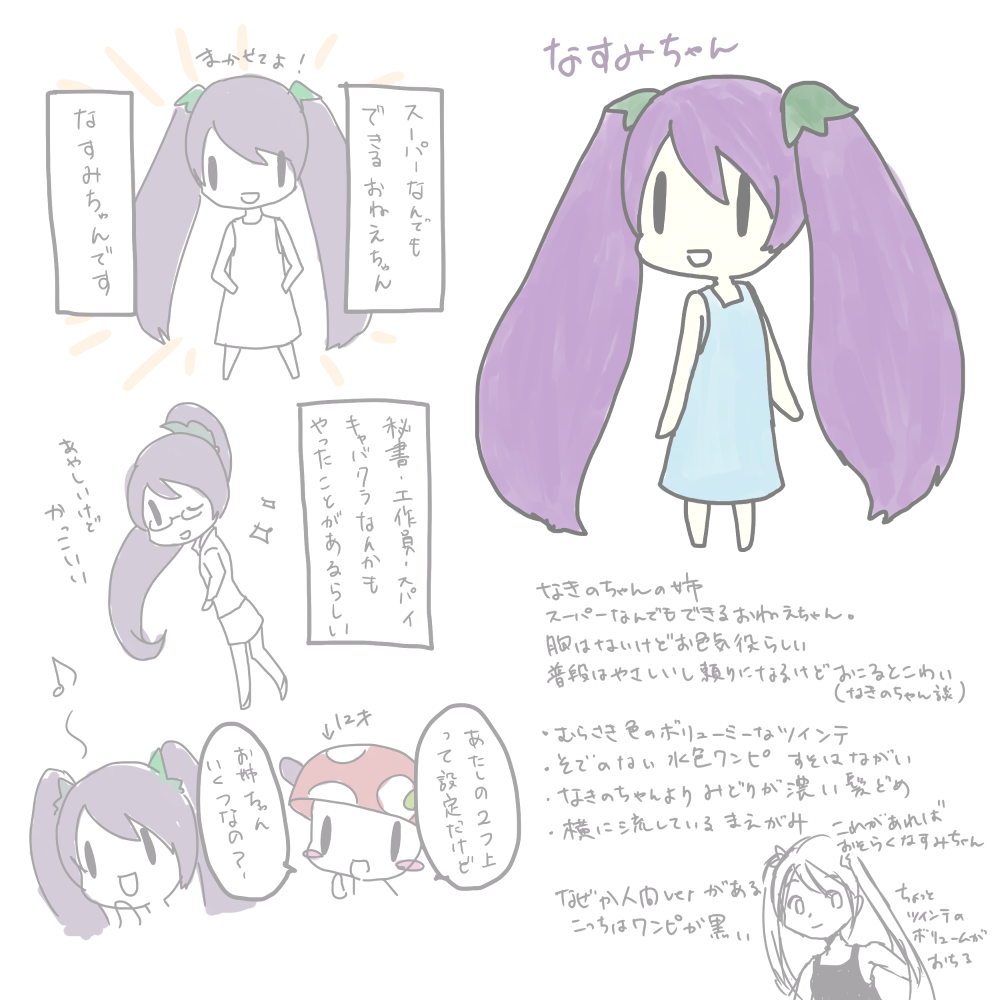 なすみちゃん
まかせてよ！
スーパーなんでも
できるおねえちゃん
なすみちゃんです
秘書・工作員・スパイ
キャバクラなんかも
やったことがあるらしい
あやしいけど
かっこいい
12才
あたしの2つ上
って設定だけど
お姉ちゃん
いくつなの？
なきのちゃんの姉
スーパーなんでもできるおねえちゃん。
胸はないけどお色気役らしい
普段はやさしいし頼りになるけどおこるとこわい
(なきのちゃん談)
・むらさき色のボリューミーなツインテ
・そでのない水色ワンピ すそはながい
・なきのちゃんより みどりが濃い髪どめ
・横に流しているまえがみ
これがあれば
おそらくなすみちゃん
なぜか人間verがある
こっちはワンピが黒い
ちょっと
ツインテの
ボリュームが
おちる